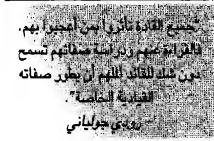 "جميع القادة تأثروا بمن أعجبوا بهم.
فالقراءة عنهم ودراسة صفاتهم تسمح
دون شك للقائد الملهم أن يطور صفاته
القيادية الخاصة".
رودي جولياني